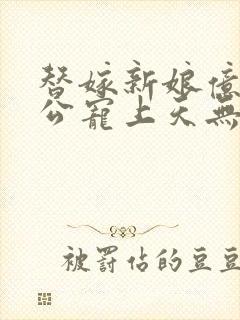 替嫁新娘亿
公宠上天无
被罚站的豆豆